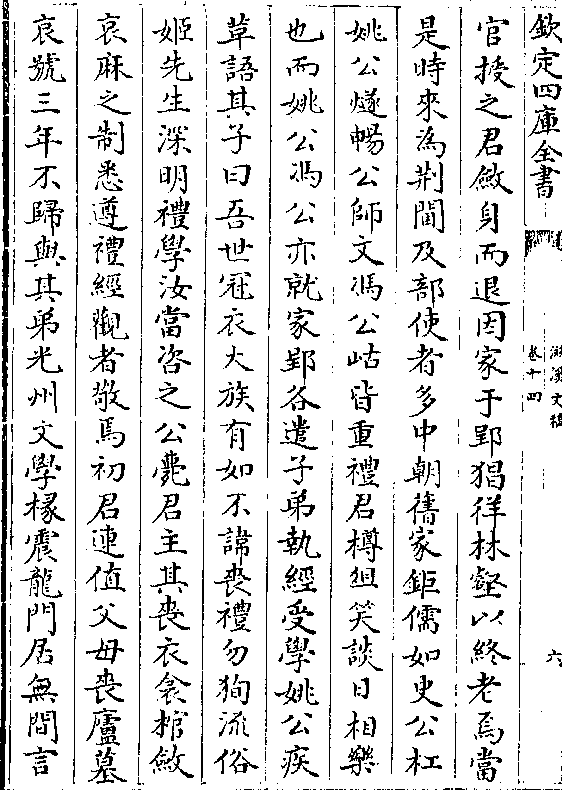 欽定四庫全書
滋溪文稿
卷十四
六
官授之君斂身而退因家于郢猖徉林壑以終老焉當
是時來為荆閫及部使者多中朝舊家鉅儒如史公杠
姚公燧暢公師文馮公岵皆重禮君樽俎笑談日相樂
也而姚公馮公亦就家郢各遣子弟執經受學姚公疾
革語其子曰吾世冠衣大族有如不諱喪禮勿狥流俗
姬先生深明禮學汝當咨之公薨君主其喪衣衾棺斂
衰麻之制悉遵禮經觀者敬焉初君連值父母喪廬墓
哀號三年不歸與其弟光州文學掾震龍門居無間言